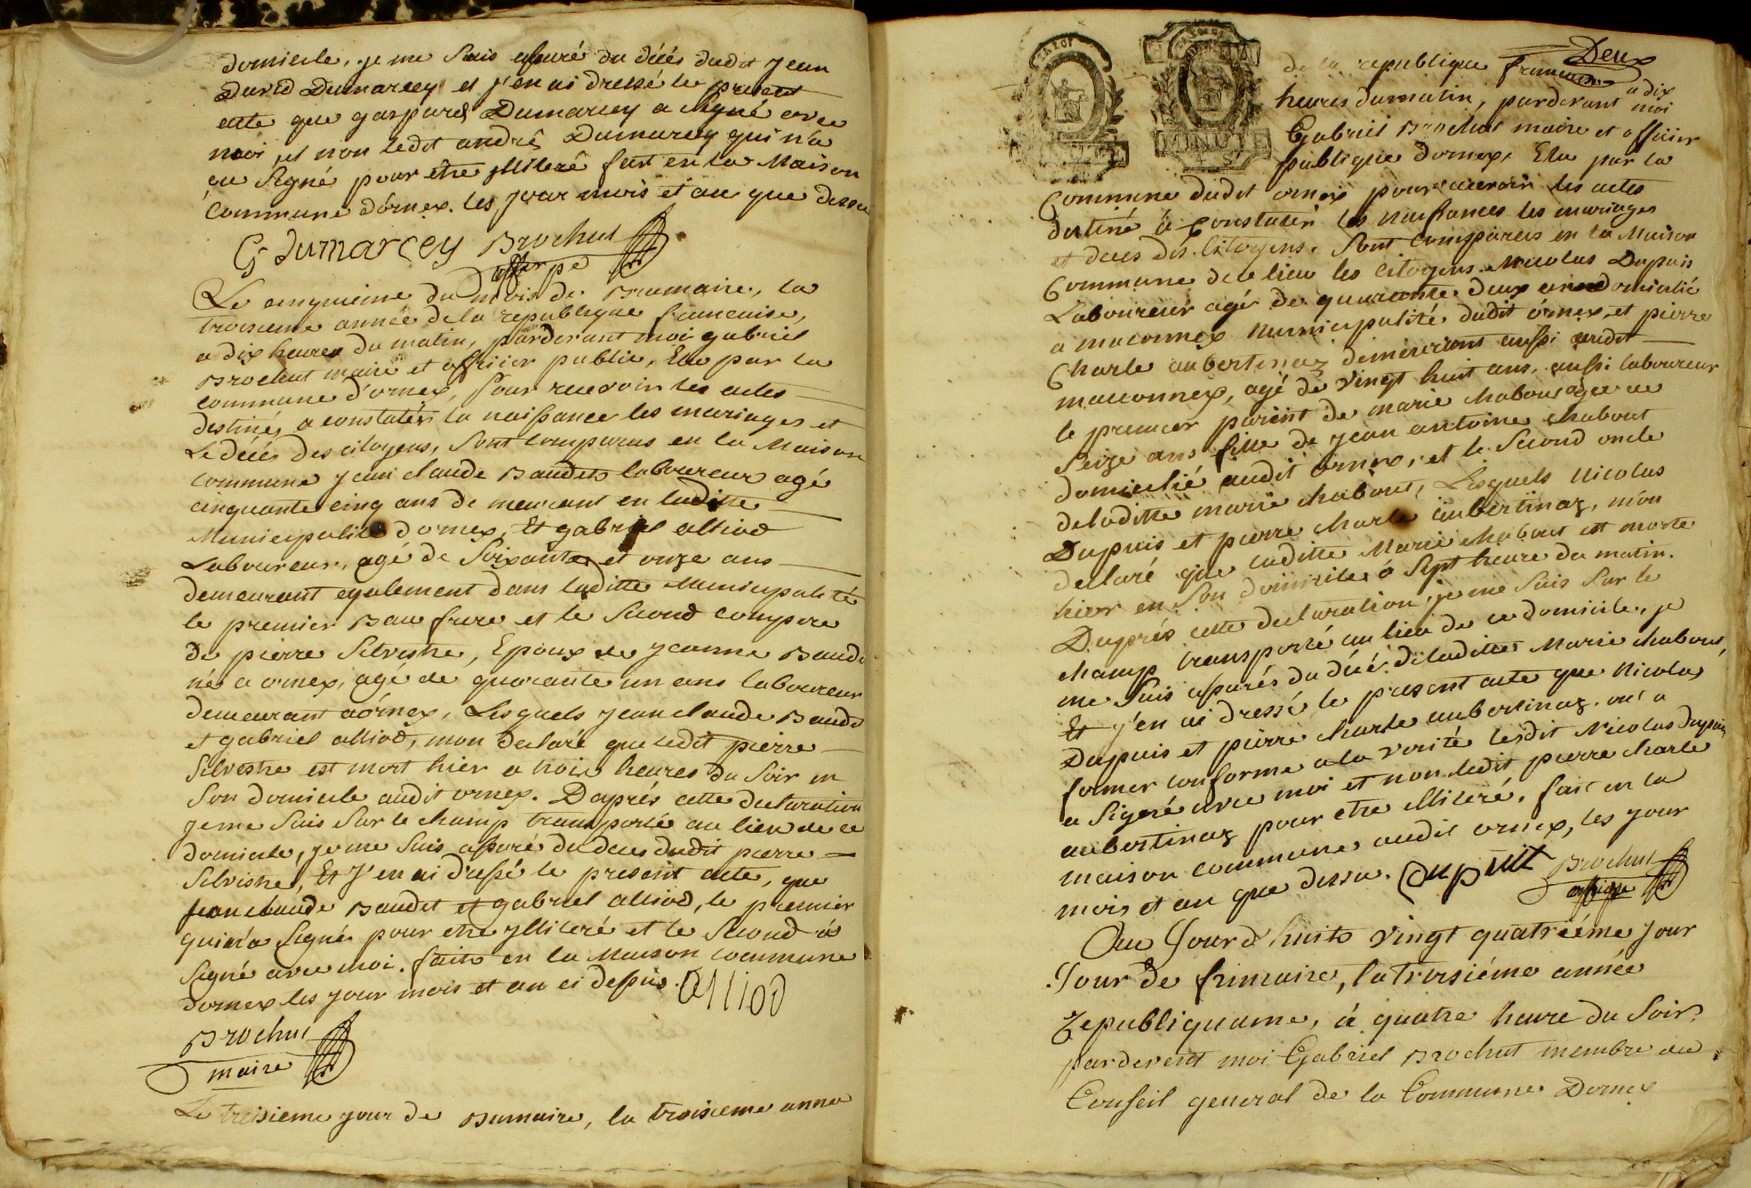 domicile, je me suis assuré du décés dudit jean
David Dumarcey et j'en ai dressé le présent
acte que gaspard Dumarcey a signé avec
moi, et non ledit andré Dumarcey qui n'a
pu signé pour etre illiteré fait en la Maison
Commune d'ornex. les jour mois et an que dessu
G Dumarcey Brochut
off pe
Le cinquieme du mois de Brumaire, la
troisieme année de la republique francaise,
a dix heures du matin, pardevant moi gabriel
Brochut maire et officier public, Elu par la
commune d'ornex, pour recevoir les actes
destiné a constater la naissance les mariages et
Le décés des citoyens, sont comparus en la Maison
commune jean claude Baudet laboureur agé
cinquante cinq ans demeurant en laditte
Municipalité d'ornex, Et gabriel alliod
Laboureur, agé de soixante et onze ans
demeurant egalement dans laditte Municipalité
le premier Beau frere et le second compere
de pierre Silvestre, Epoux de jeanne Baude
né a ornex, agé de quarante un ans laboureur
demeurant a órnex, Lesquels jean claude Baude
et gabriel alliod, mon declaré que ledit pierre
Silvestre est mort hier a trois heures du soir en
son domicile audit ornex. D'aprés cette declaration
je me suis sur le champ transporté au lieu de ce
domicile, je me suis assuré du deces dudit pierre
Silvestre, Et j'en ai dressé le présent acte, que
jean claude Baudet et gabriel alliod, le premier
qui n'a signé pour etre illiteré et le second á
signé avec moi. fait en la Maison commune
d'ornex les jour mois et an ci dessus. alliod
Brochut
maire
Le treisieme jour de Brumaire, la troisieme anne
Deux
de la republique francaise
a dix
heures du matin, pardevant moi
Gabriel Brochut maire et officier
publique d'ornex, Elu par la
Commune dudit ornex pour recevoir les actes
destiné à constater les naissances les mariages
et deces des citoyens. sont comparus en la Maison
Commune de ce lieu les citoyens Nicolas Dupuis
Laboureur agé de quarante deux domicilié
a maconnex municipalité dudit órnex, et pierre
Charle aubertinaz demeurant aussi audit
maconnex, agé de vingt huit ans, aussi laboureur
le premier parent de marie chabout agée de
seize ans fille de jean antoine chabout
domicilié audit ornex, et le second oncle
de laditte marie chabout, Lesquels Nicolas
Dupuis et pierre charle aubertinaz, m'on
declaré que laditte Marie chabout est morte
hier en son domicile á sept heure du matin.
D'aprés cette declaration, je me suis sur le
champ transporté au lieu de ce domicile, je
me suis assurés du décés de laditte Marie chabout,
Et j'en ai dressé le present acte que Nicolas
Dupuis et pierre charle aubertinaz. ont a
former conforme a la verité ledit Nicolas Dupuis
a signé avec moi et non ledit pierre charle
aubertinaz pour etre illiteré. fait en la
maison commune audit ornex, les jour
mois et an que dessu. Dupuit Brochut
Au Jourd'huit vingt quatriéme jour
Jour de frimaire, la troisiéme année
republiquaine, à quatre heure du soir.
pardevent moi Gabriel Brochut membre du
Conseil general de la Commune Dornex